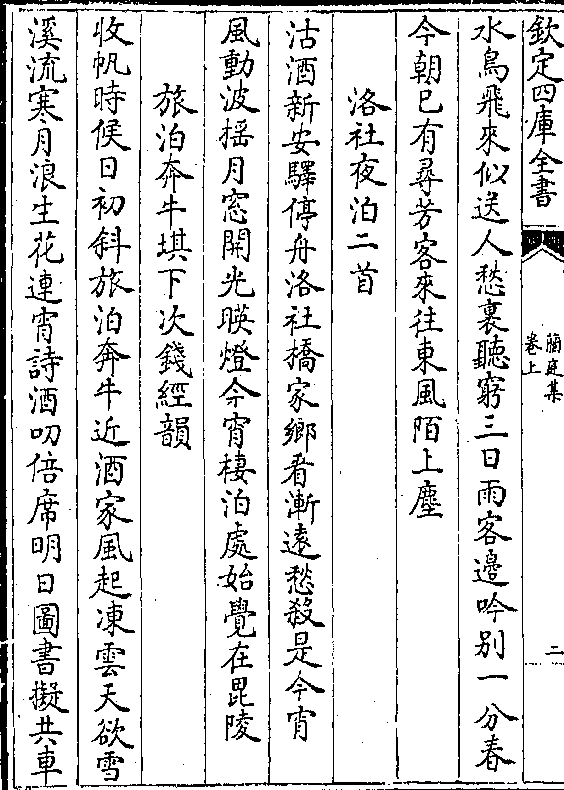 欽定四庫全書
蘭庭集
卷上
二
水鳥飛來似送人愁裏聽窮三日雨客邊吟別一分春
今朝已有尋芳客來往東風陌上塵
洛社夜泊二首
沽酒新安驛停舟洛社橋家鄉看漸遠愁殺是今宵
風動波揺月窓開光暎燈今宵棲泊處始覺在毘陵
旅泊奔牛埧下次錢經韻
收帆時候日初斜旅泊奔牛近酒家風起凍雲天欲雪
溪流寒月浪生花連宵詩酒叨倍席明日圖書擬共車